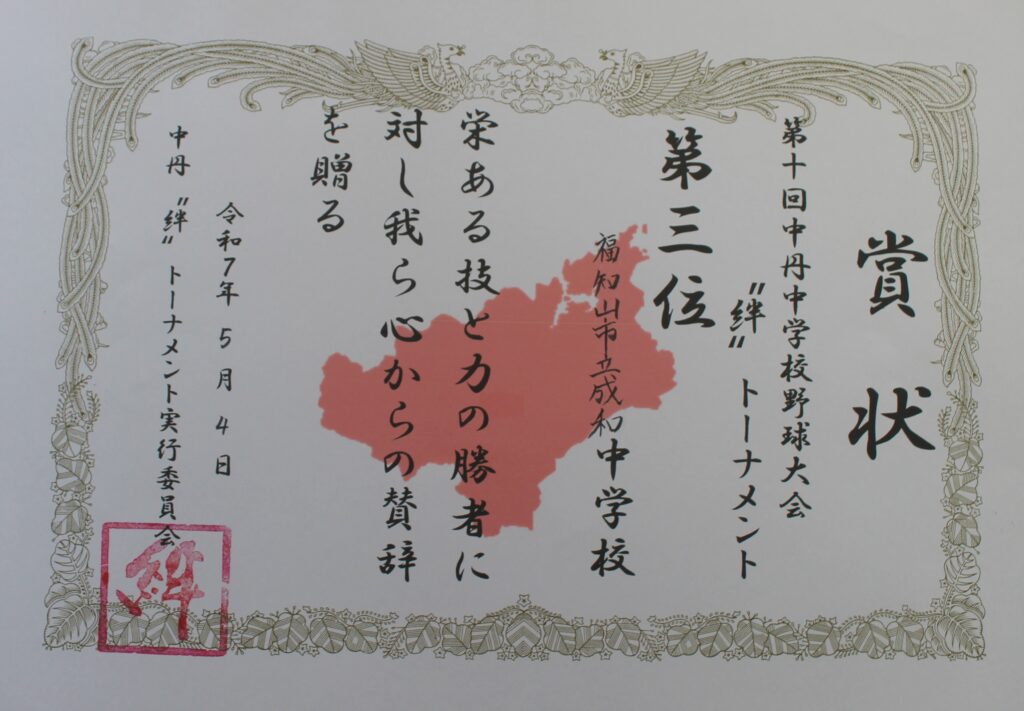 賞状
第十回中丹中学校野球大会
〝絆〟トーナメント
第三位
福知山市立成和中学校
栄ある技と力の勝者に
対し我ら心からの賛辞
を贈る
令和7年5月4日
中丹〝絆〟トーナメント実行委員会
絆